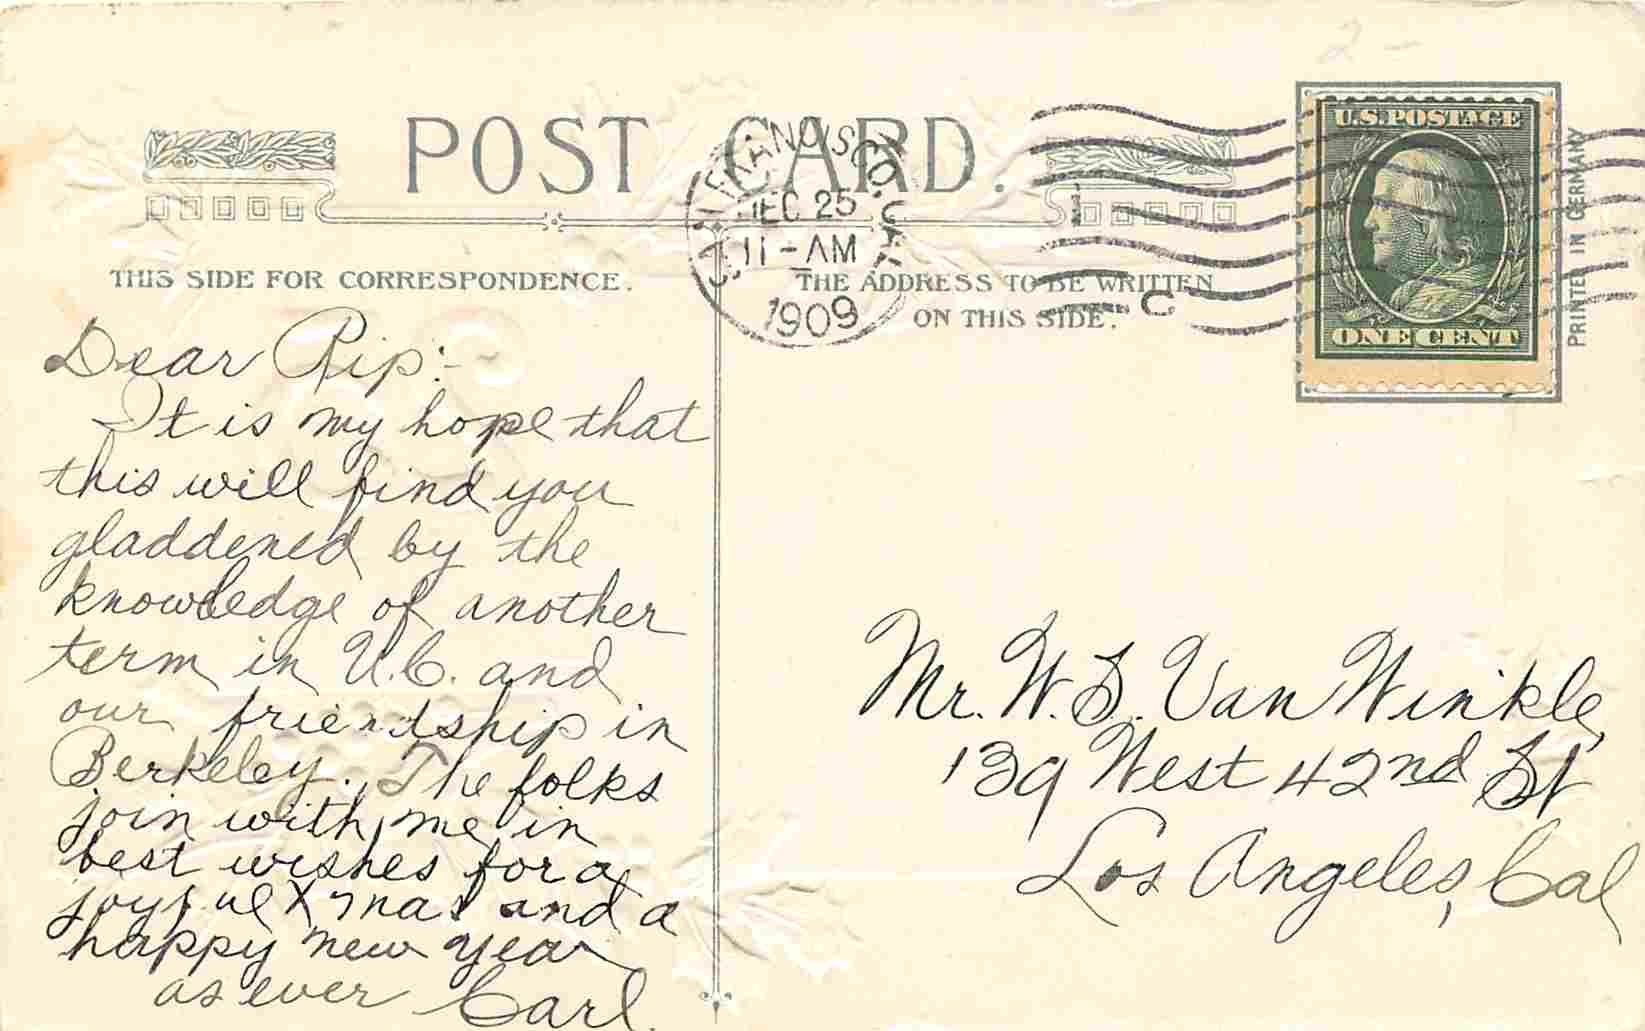 2 -
POST CARD.
SAN FRANCISCO, CAL
DEC 25
11-AM
1909
1
C
U.S. POSTAGE
ONE CENT
PRINTED IN GERMANY
THIS SIDE FOR CORRESPONDENCE.
THE ADDRESS TO BE WRITTEN
ON THIS SIDE.
Dear Rip:-
It is my hope that
this will find you
gladdened by the
knowledge of another
term in U.C. and
our friendship in
Berkeley. The folks
join with me in
best wishes for a
joyful Xmas and a
happy new year
as ever Carl.
Mr. W. S. Van Winkle,
139 West 42nd St
Los Angeles, Cal